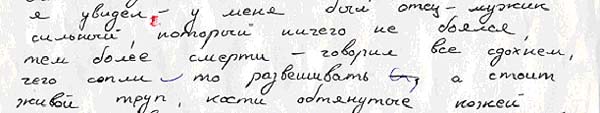 я увидел – у меня был отец – мужик
сильный, который ничего не боялся,
тем более смерти – говорил все сдохнем,
чего сопли то развешивать, а стоит
живой труп, кости обтянутые кожей